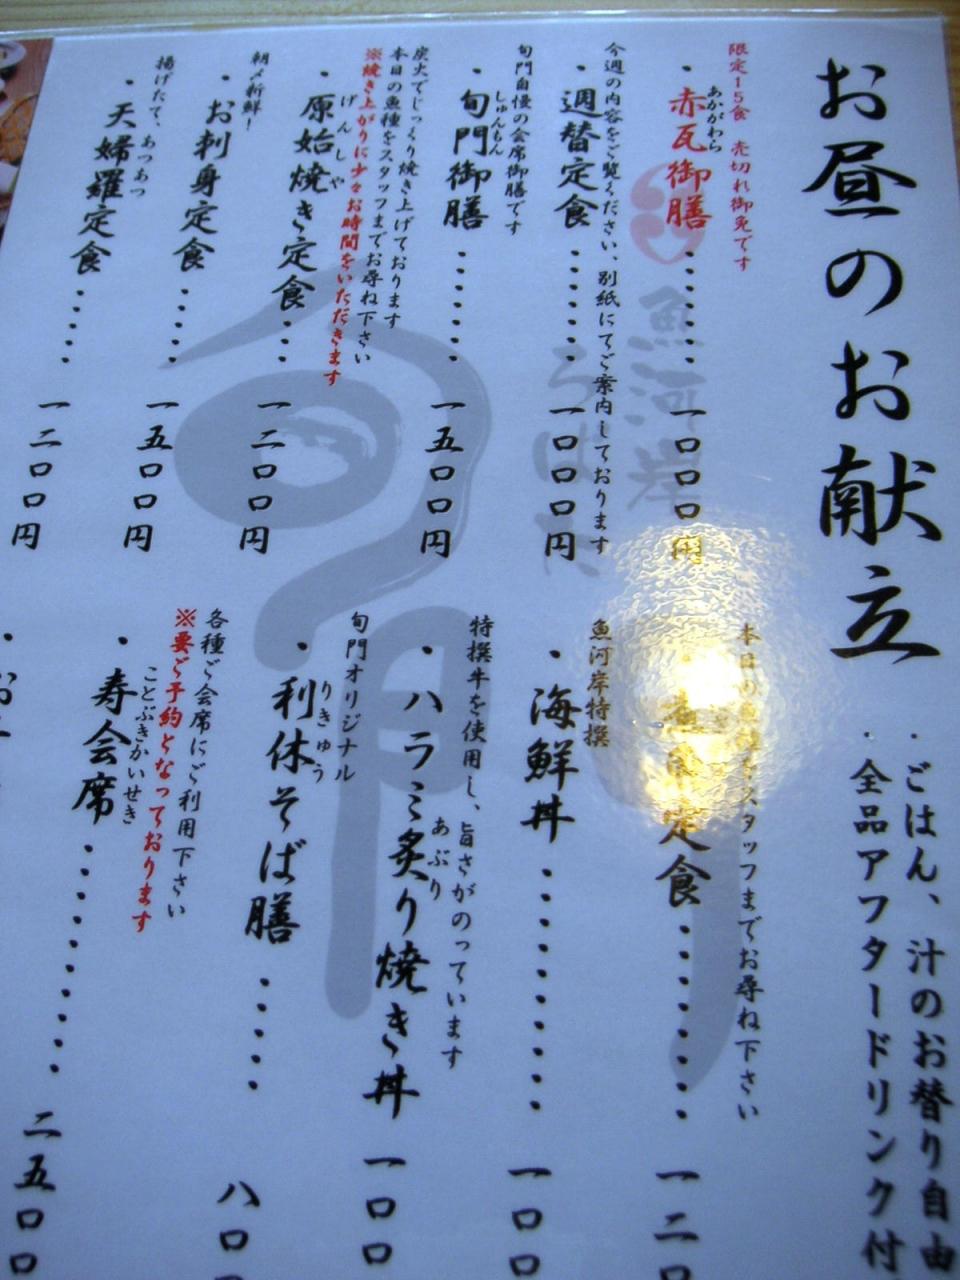 お昼のお献立
・ごはん、汁のお替り自由
・全品アフタードリンク付
限定15食 売切れ御免です
・赤瓦御膳 一〇〇〇円
あかがわら
今週の内容をご覧ください、別紙にてご案内しております
・週替定食 一〇〇〇円
旬門自慢の会席御膳です
・旬門御膳 一五〇〇円
しゅんもん
炭火でじっくり焼き上げております
本日の魚種をスタッフまでお尋ね下さい
※焼き上がりに少々お時間をいただきます
・原始焼き定食 一二〇〇円
げんしや
朝〆新鮮！
・お刺身定食 一五〇〇円
揚げたて、あつあつ
・天婦羅定食 一二〇〇円
スタッフまでお尋ね下さい
定食 一二〇
魚河岸特撰
・海鮮丼 一〇〇
特撰牛を使用し、旨さがのっています
・ハラミ炙り焼き丼 一〇〇
あぶり
旬門オリジナル
・利休そば膳 八〇
りきゅう
各種ご会席にご利用下さい
※要ご予約となっております
・寿会席 二五〇〇
ことぶきかいせき
魚河岸
旬門